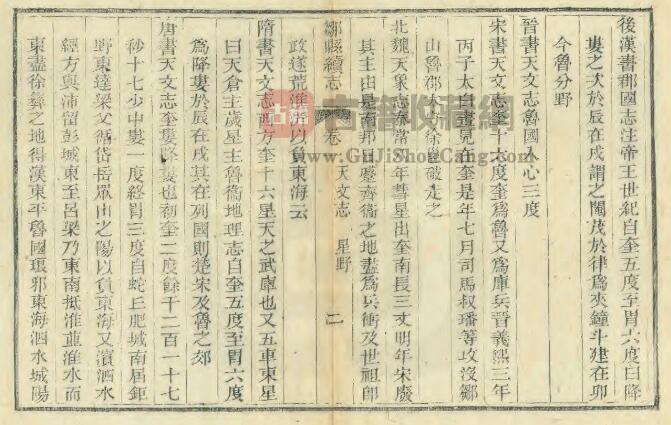 後漢書郡國志注帝王世紀自奎五度至胃六度曰降
婁之次於辰在戌謂之閹茂於律爲夾鐘斗建在卯
今魯分野
晉書天文志魯國入心三度
宋書天文志奎十六度奎爲魯又爲庫兵晉義熙三年
丙子太白晝見在奎是年七月司馬叔璠等攻沒鄒
山魯郡太守徐邕破走之
北魏天象志泰常年彗星出奎南長三丈明年宋廢
其主由是南邦日蹙齊衛之地盡爲兵衝及世祖卽
鄒縣續志 卷一 天文志 星野 二
政遂荒淮沂以負東海云
隋書天文志西方奎十六星天之武庫也又五車東星
曰天倉主歲星主魯衞地理志自奎五度至胃六度
爲降婁於辰在戌其在列國則楚宋及魯之郊
唐書天文志奎婁降婁也初奎二度餘千二百一十七
秒十七少中婁一度終胃三度自蛇丘肥城南屆鉅
野東達梁父循岱岳衆山之陽以負東海又濱泗水
經方與沛留彭城東至呂梁乃東南抵淮並淮水而
東盡徐彝之地得漢東平魯國琅邪東海泗水城陽
古籍收藏網
www.GuJiShouCang.com